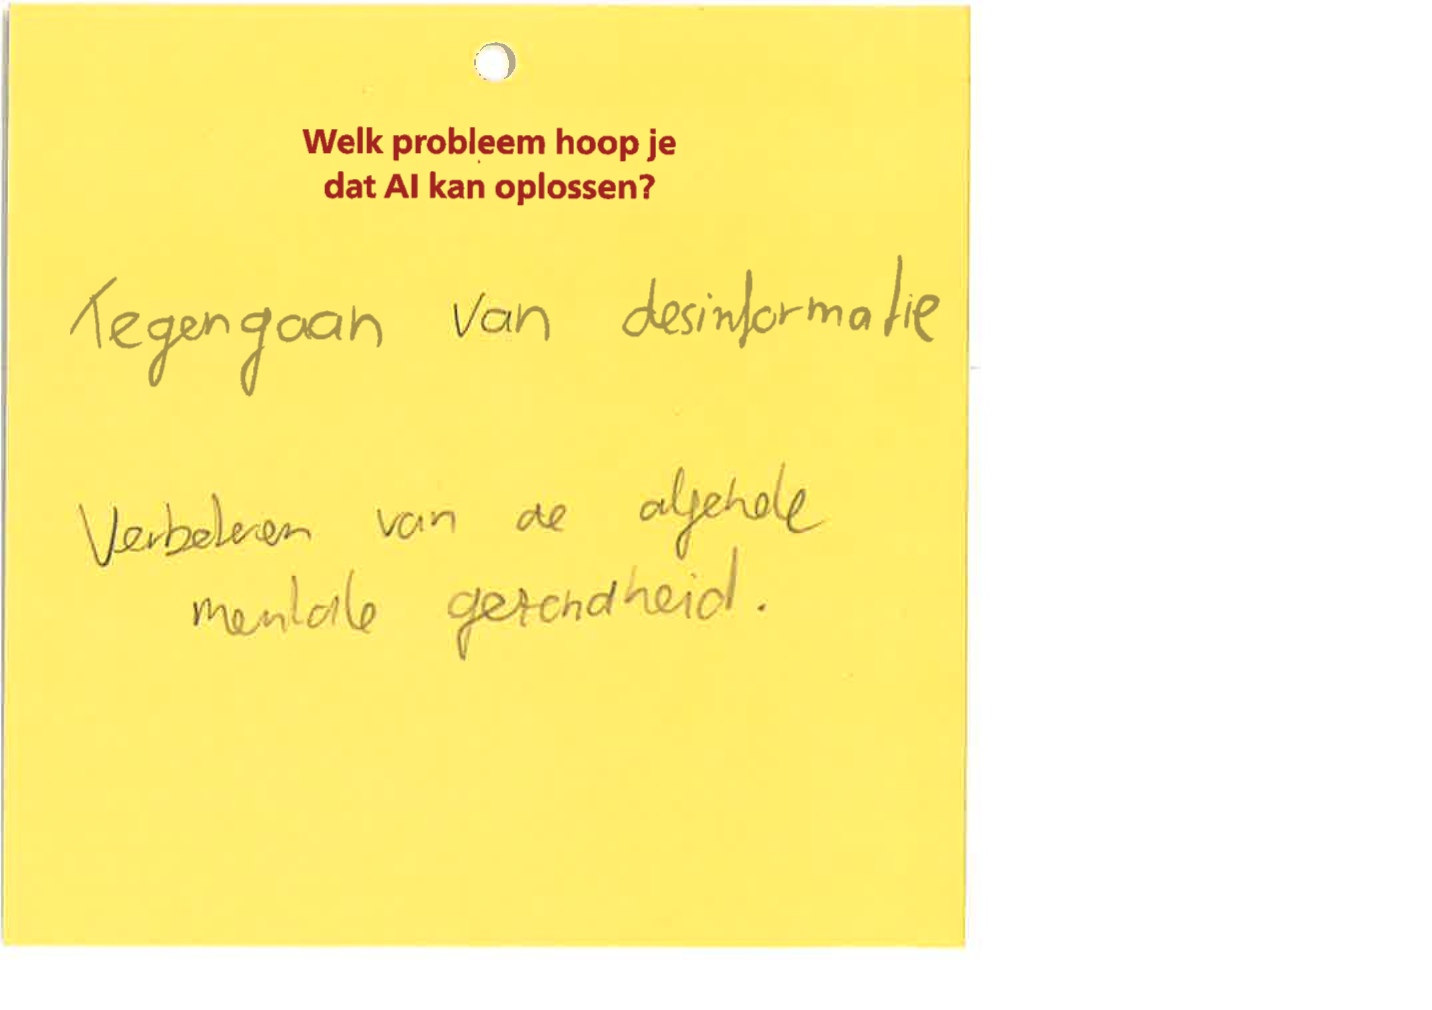 Welk probleem hoop je
dat AI kan oplossen?
Tegengaan van desinformatie
Verbeteren van de algehele
mentale gezondheid.